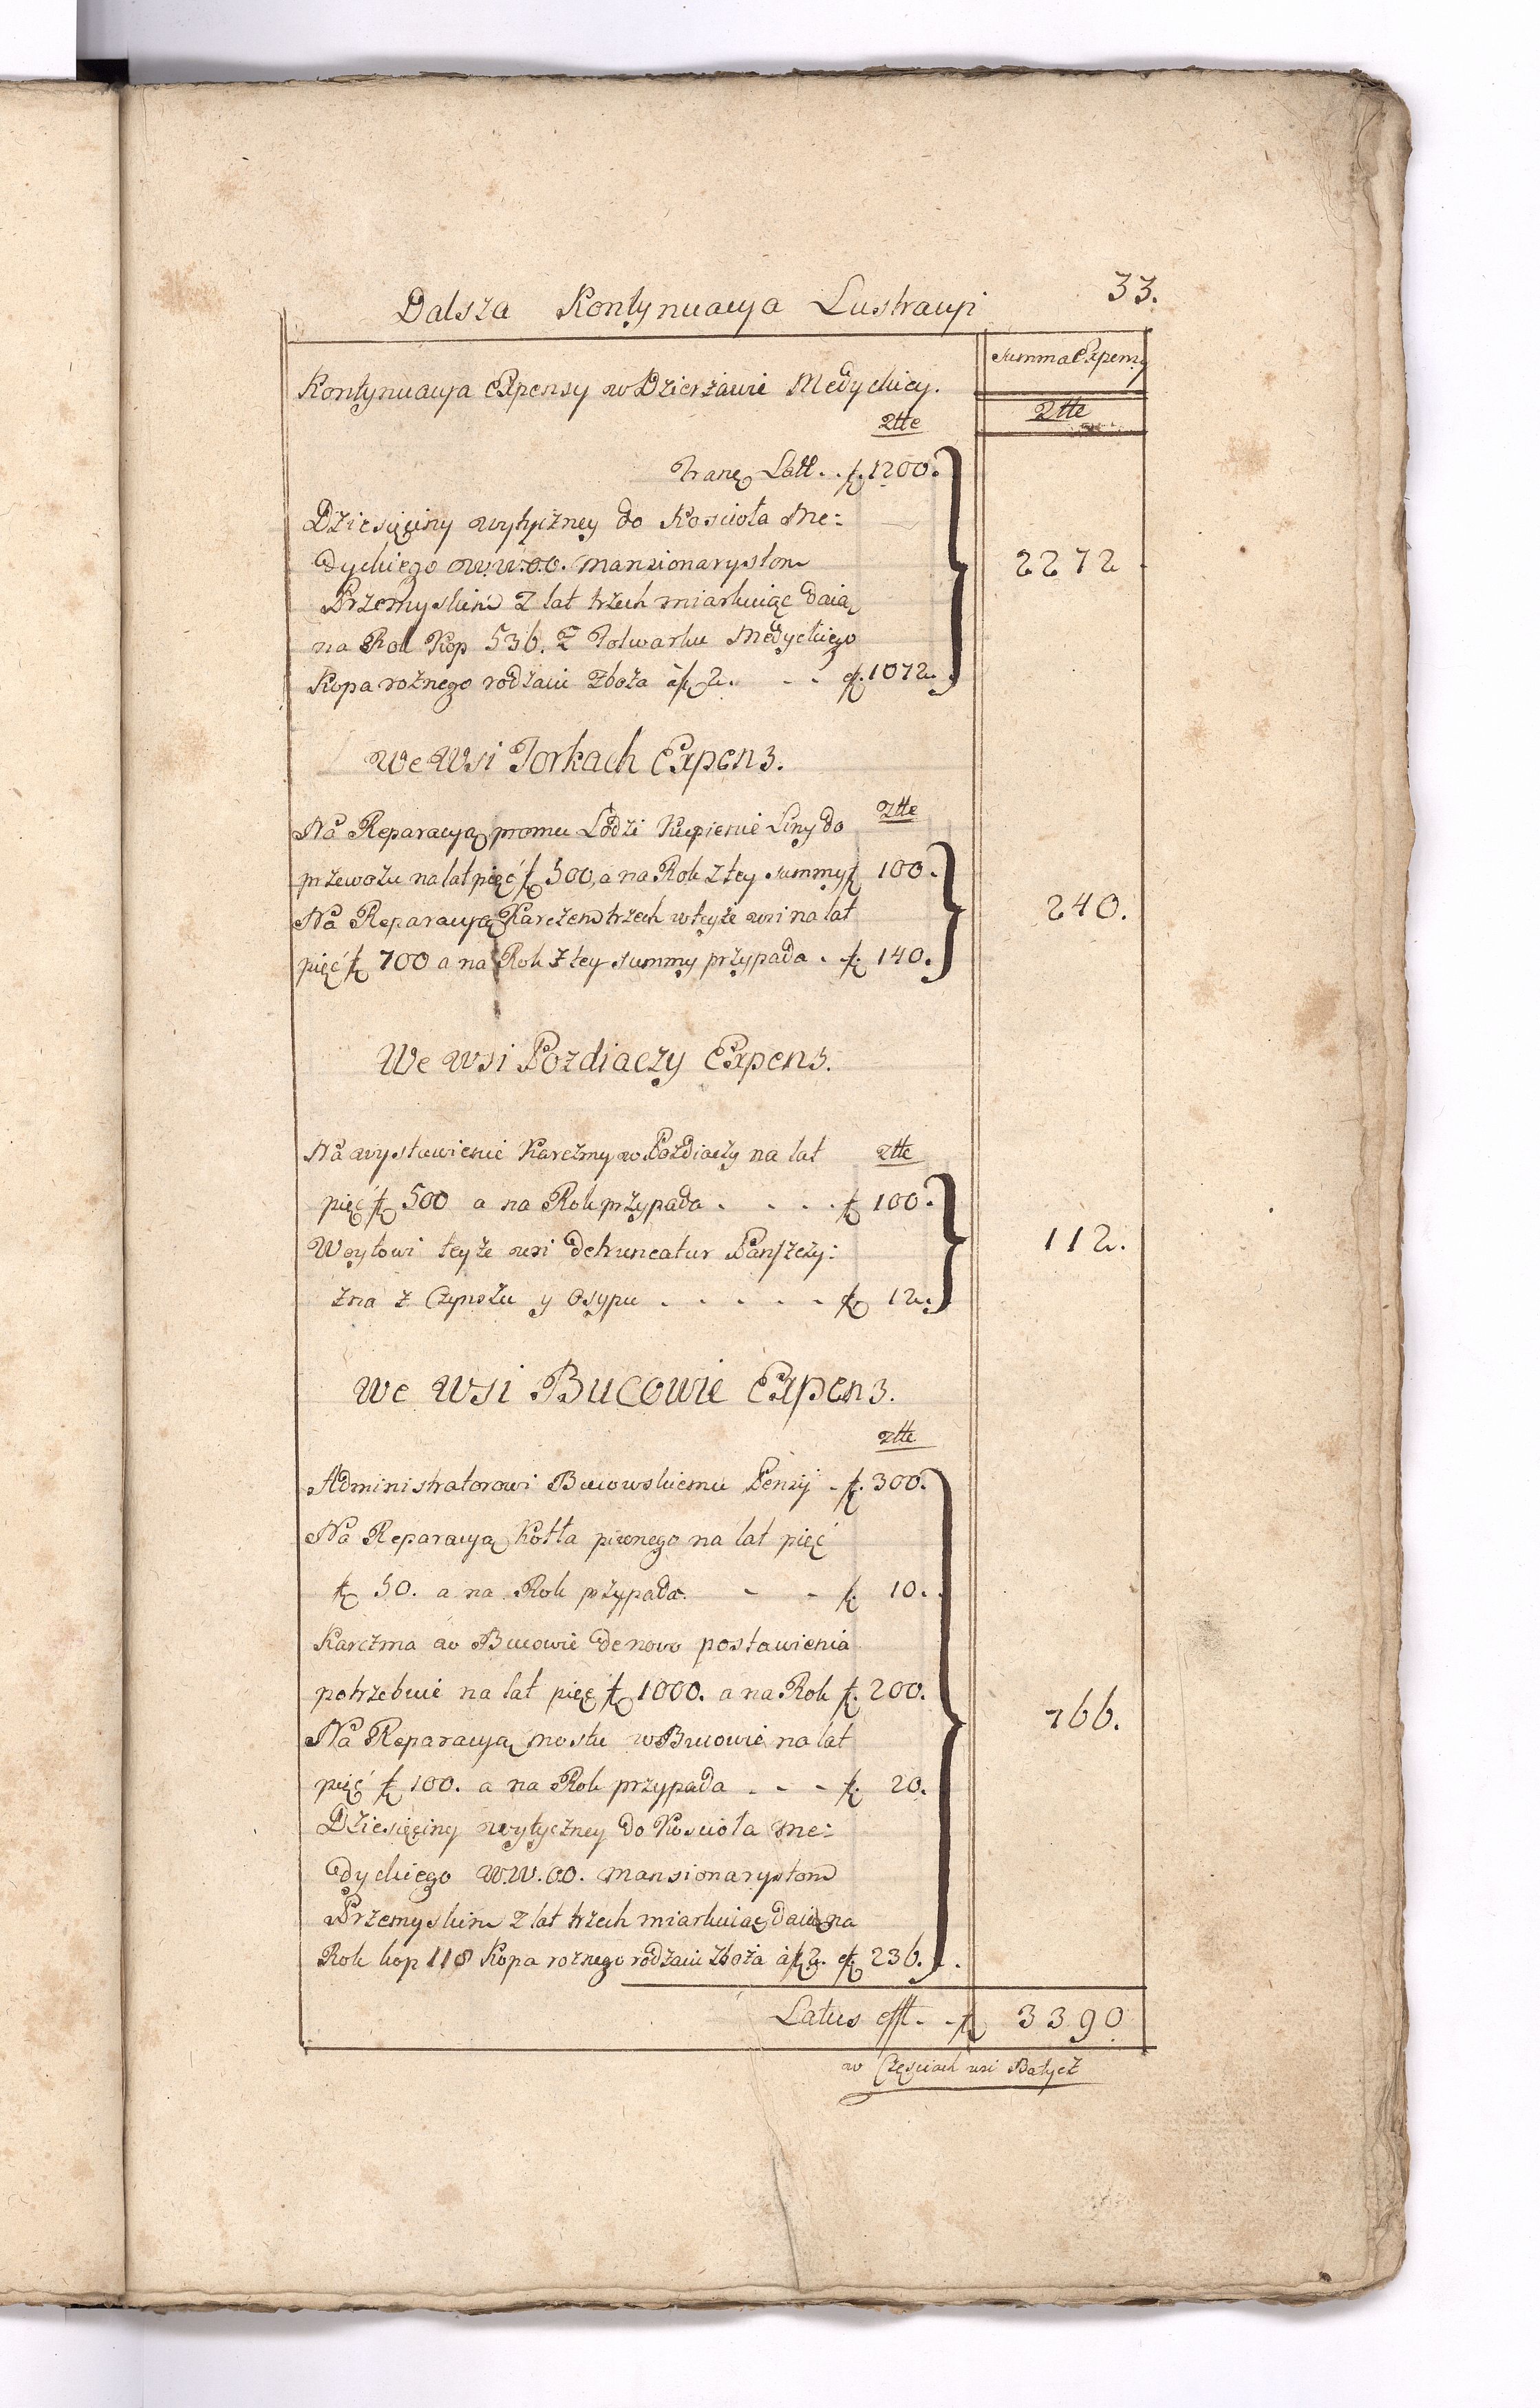 33.
Dalsza Kontynuacya Lustracyi
Summa Expensy
Kontynuacya Expensy w Dzierżawie Medyckiey.
Złłe
Złłe
Tranę Latt. . fl. 1200.
Dziesięciny wytyczney do Koscioła Me:
dyckiego W.W.O.O. Mansionarystom
Przemyskim z lat trzech miarkuiąc daią
na Rok Kop 536. z Folwarku Medyckiego
Kopa rożnego rodzaiu zboża à fl 2. - - fl. 1072.
2272
We Wsi Torkach Expens.
Złłe
Na Reparacyą promu Łodzi Kupienie Liny do
przewozu na lat pięć fl 500, a na Rok z tey summy fl 100.
Na Reparacyą Karczem trzech w teyże wsi na lat
pięć fl 700 a na Rok z tey summy przypada . fl. 140.
240.
We Wsi Pozdiaczy Expens.
Na wystawienie Karczmy w Pozdiaczy na lat
złłe
pięć fl 500 a na Rok przypada . . . . fl 100.
Woytowi teyże wsi detruncatur Panszczy:
zna z Czynszu y Osypu . . . . . fl 12.
112.
We Wsi Bucowie Expens.
złłe
Administratorowi Bucowskiemu Pensyi . fl. 300.
Na Reparacyą Kotła piwnego na lat pięć
fl 50. a na Rok przypada. - - fl. 10.
Karczma w Bucowie de novo postawienia
potrzebuie na lat pięć fl 1000. a na Rok fl. 200.
Na Reparacyą mostu w Bucowie na lat
pięć fl 100. a na Rok przypada . - - fl. 20.
Dziesięciny wytyczney do Koscioła Me:
dyckiego W.W.O.O. Mansionarystom
Przemyskim z lat trzech miarkuiąc daią na
Rok kop 118 Kopa rożnego rodzaiu zboża à fl 2. fl. 236.
766.
Latus efft. . fl 3390
w Częsciach wsi Batycz